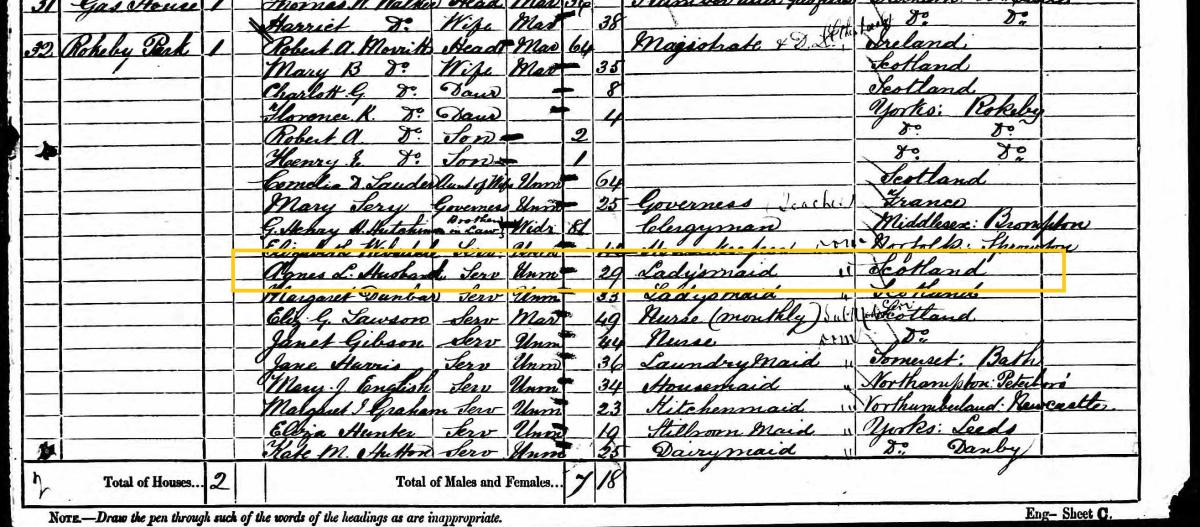 31 Gas House 1 Thomas Walker Head Mar 36
Harriet Do Wife Mar 38 Do Do
32 Rokeby Park 1 Robert A. Morritt Head Mar 64 Magistrate & D.L. Ireland
Mary B Do Wife Mar 35 Scotland
Charlott G. Do Daur 8 Scotland
Florence K. Do Daur 4 Yorks: Rokeby
Robert A. Do Son 2 Do Do
Henry E. Do Son 1 Do Do
Cornelia D Lauder Aunt of Wife Unm 64 Scotland
Mary Sery Governess Unm 25 Governess (Teacher) France
G. Henry Brother in Law Widr 81 Clergyman Middlesex: Brompton
Serv Unm Norfolk:
Agnes L. Husband Serv Unm 29 Ladysmaid " Scotland
Margaret Dunbar Serv Unm 35 Ladysmaid " Scotland
Eliz G. Lawson Serv Mar 49 Nurse (monthly) Scotland
Janet Gibson Serv Unm 44 Nurse Do
Jane Harris Serv Unm 36 Laundry Maid " Somerset: Bath
Mary J English Serv Unm 34 Housemaid " Northampton: Peterboro'
Margret I Graham Serv Unm 23 Kitchenmaid " Northumberland: Newcastle
Eliza Hunter Serv Unm 19 Stillroom Maid " Yorks: Leeds
Kate M. Hutton Serv Unm 25 Dairymaid " Do Danby
2 Total of Houses... 2 Total of Males and Females... 7 18
NOTE.—Draw the pen through such of the words of the headings as are inappropriate. Eng– Sheet C.